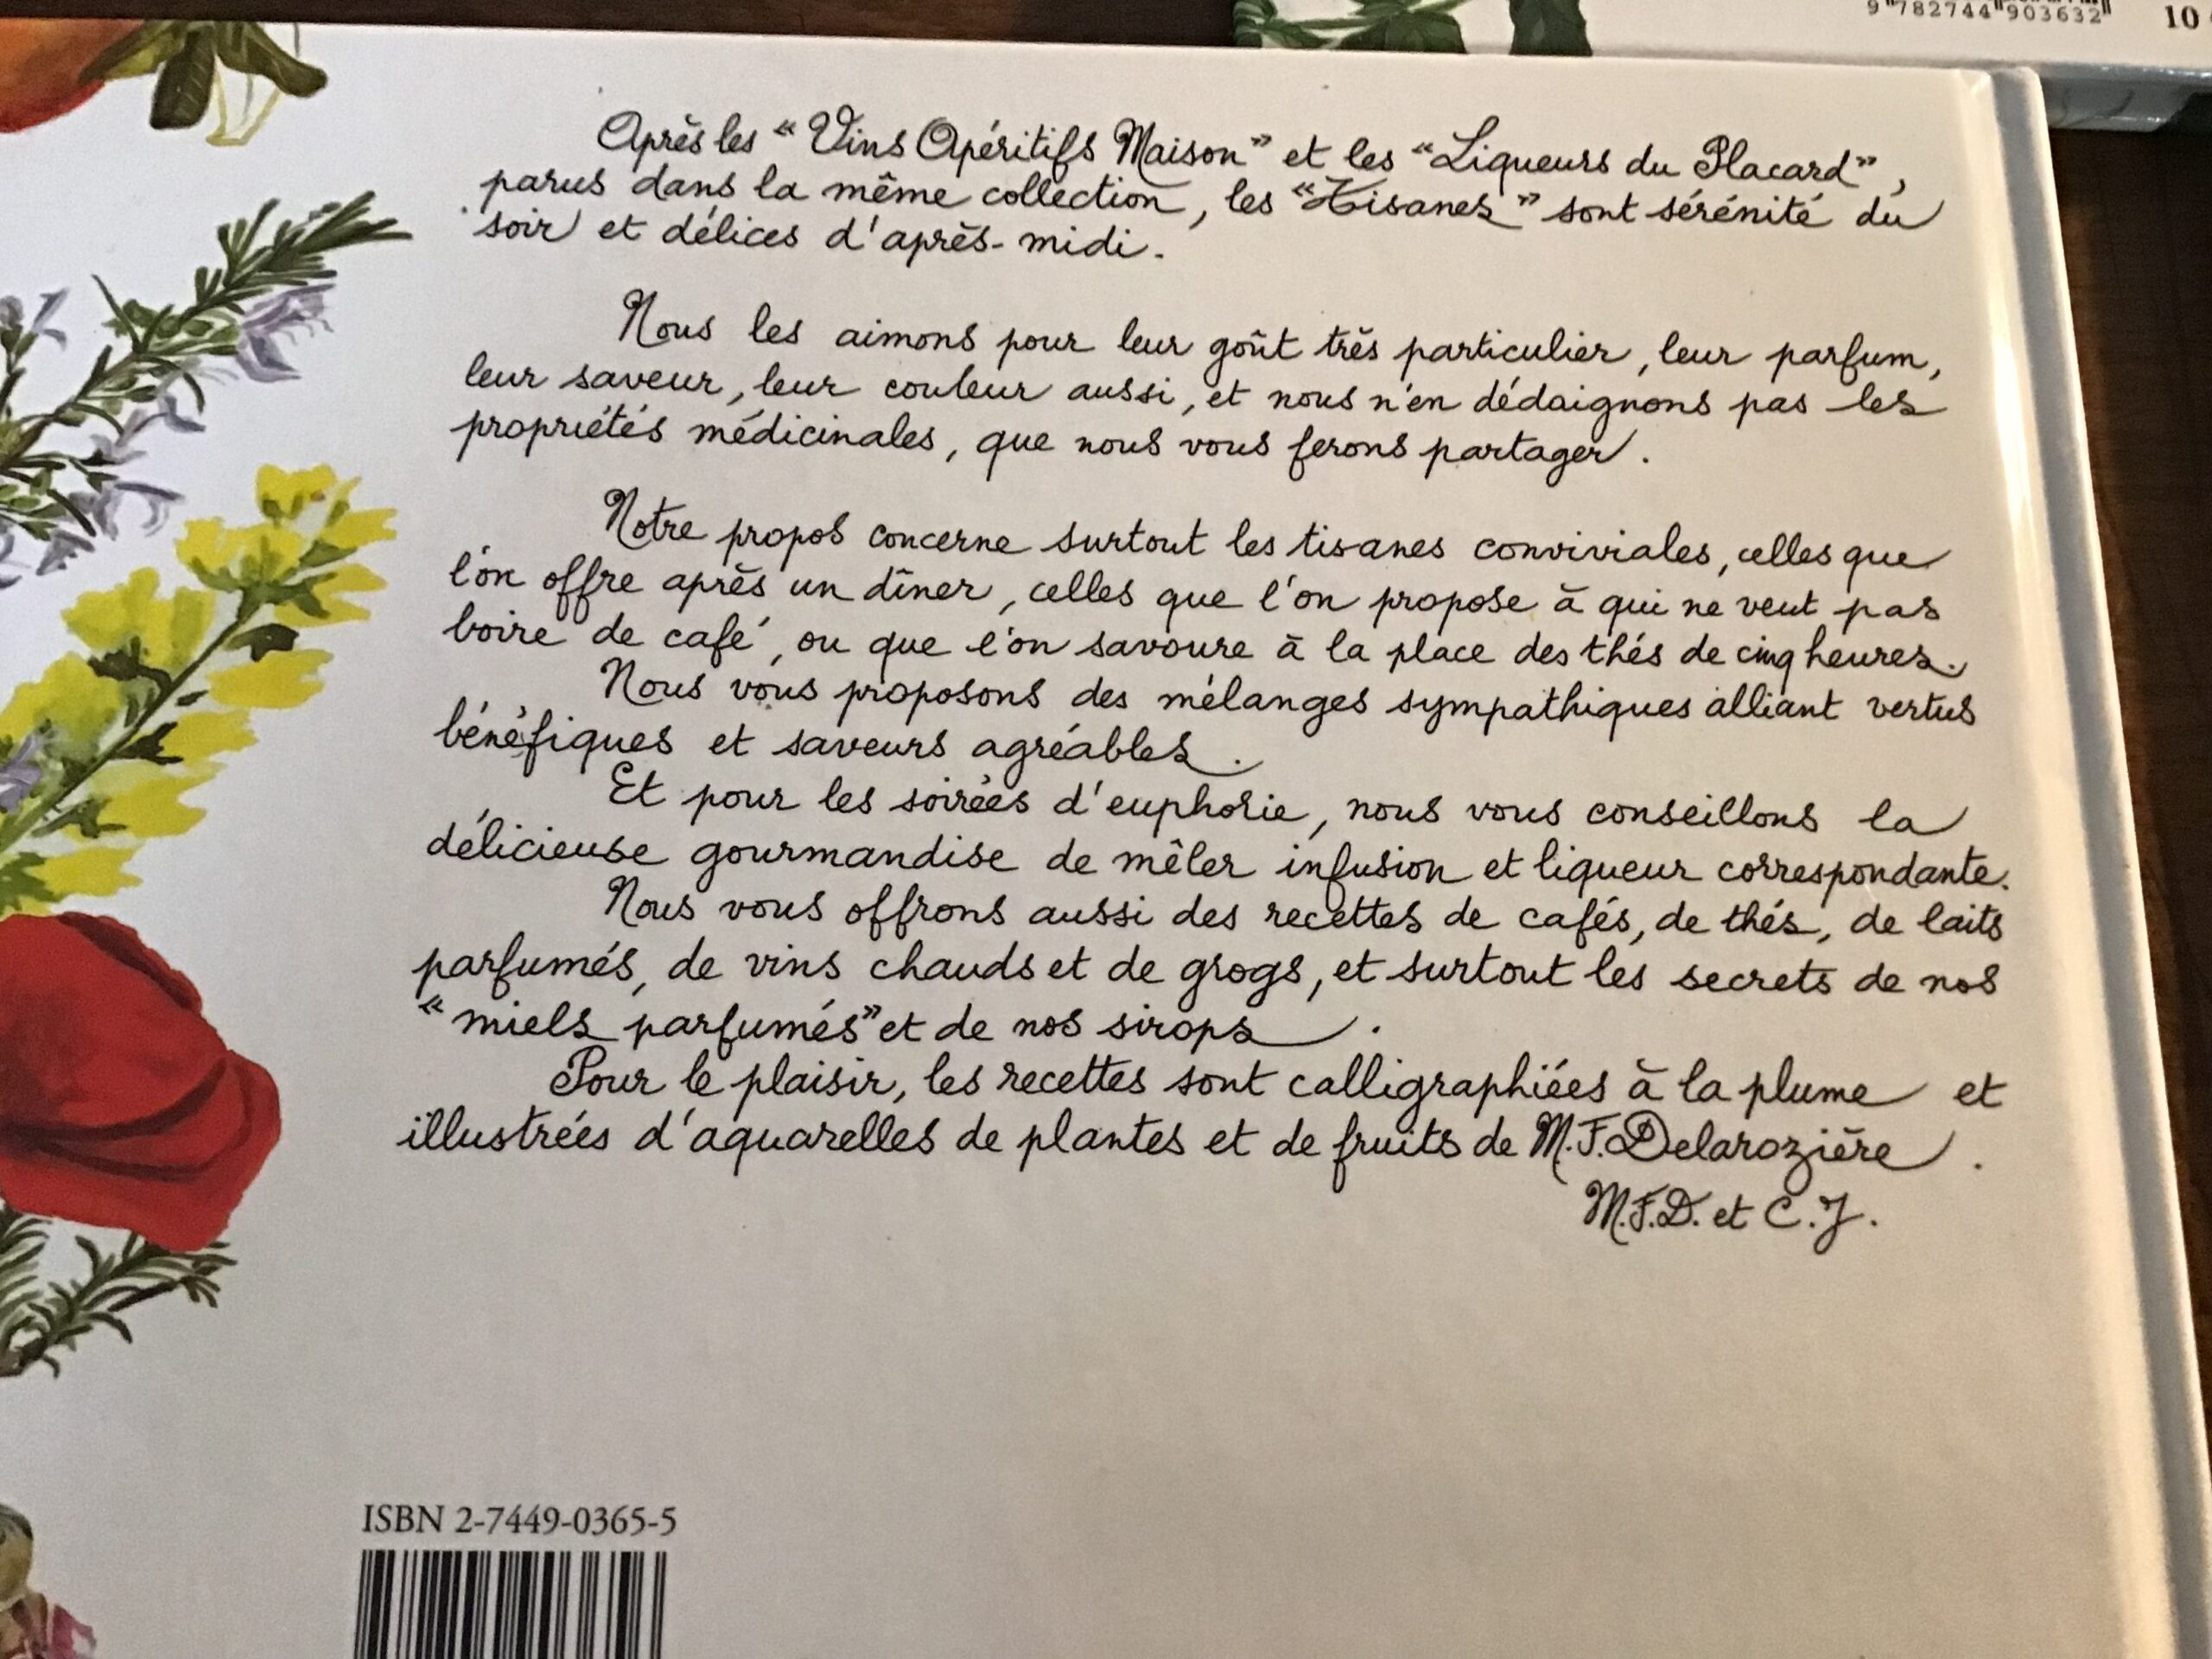 9 782744 903632
10
Après les "Vins Apéritifs Maison" et les "Liqueurs du Placard",
parus dans la même collection, les "Tisanes" sont sérénité du
soir et délices d'après-midi.
Nous les aimons pour leur goût très particulier, leur parfum,
leur saveur, leur couleur aussi, et nous n'en dédaignons pas les
propriétés médicinales, que nous vous ferons partager.
Notre propos concerne surtout les tisanes conviviales, celles que
l'on offre après un dîner, celles que l'on propose à qui ne veut pas
boire de café, ou que l'on savoure à la place des thés de cinq heures.
Nous vous proposons des mélanges sympathiques alliant vertus
bénéfiques et saveurs agréables.
Et pour les soirées d'euphorie, nous vous conseillons la
délicieuse gourmandise de mêler infusion et liqueur correspondante.
Nous vous offrons aussi des recettes de cafés, de thés, de laits
parfumés, de vins chauds et de grogs, et surtout les secrets de nos
"miels parfumés" et de nos sirops.
Pour le plaisir, les recettes sont calligraphiées à la plume et
illustrées d'aquarelles de plantes et de fruits de M.F. Delarozière.
M.F.D. et C.J.
ISBN 2-7449-0365-5